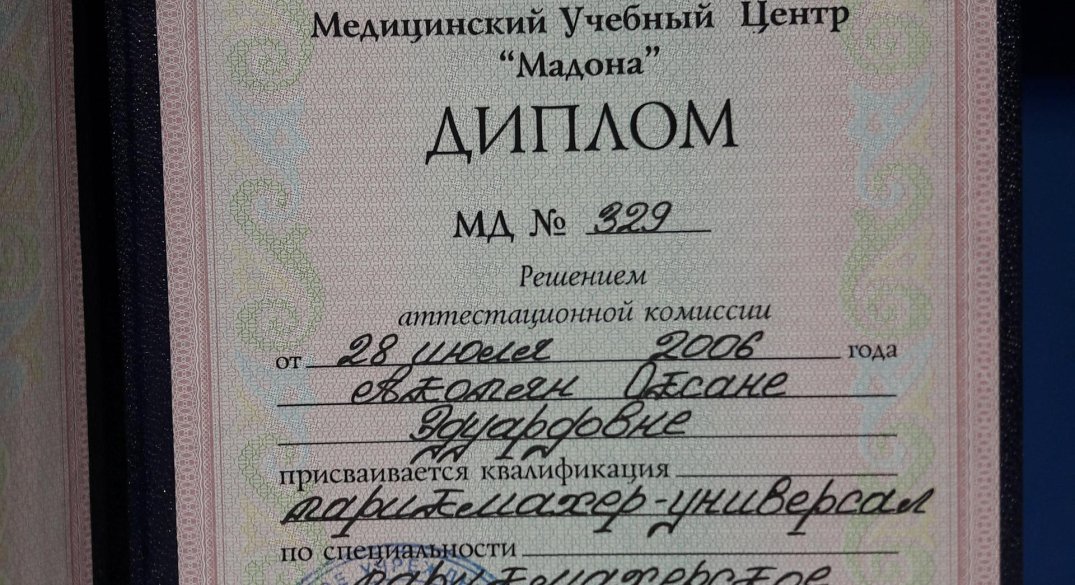 Медицинский Учебный Центр
“Мадона”
ДИПЛОМ
МД № 329
Решением
аттестационной комиссии
от 28 июля 2006 года
Акопян Оксане
Эдуардовне
присваивается квалификация
парикмахер-универсал
по специальности
парикмахерское